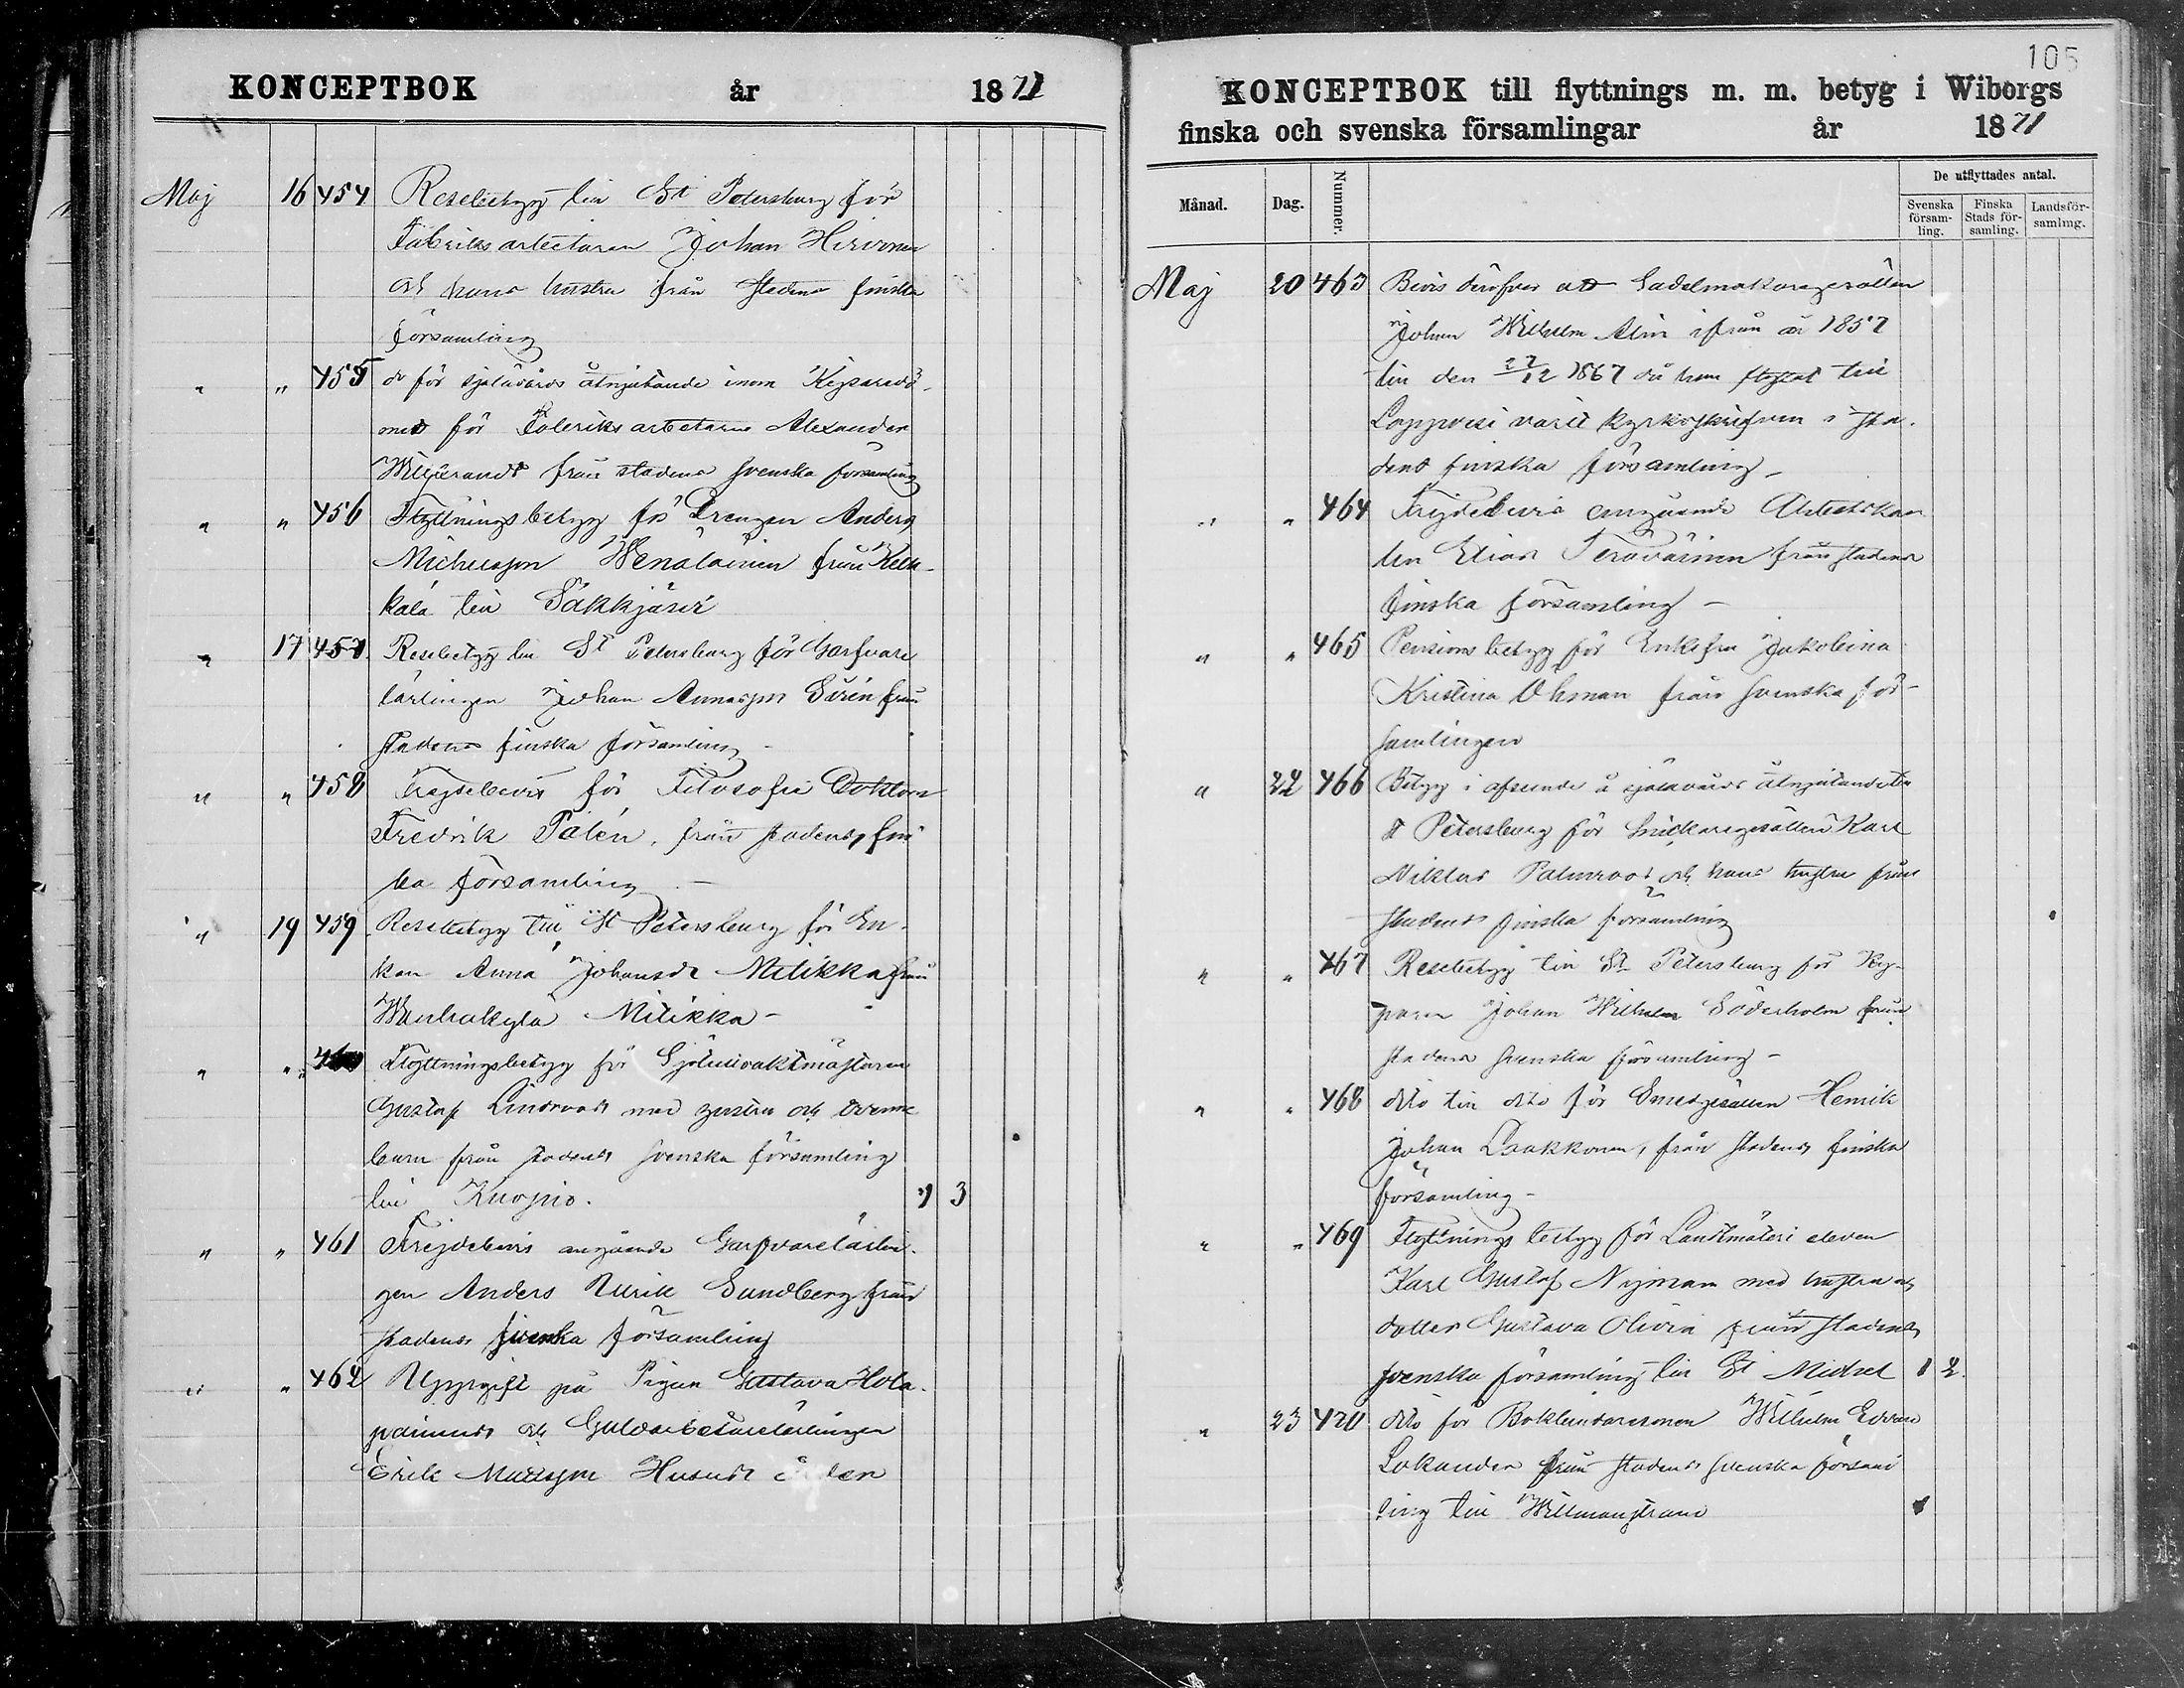 KONCEPTBOK år 1871
Maj 16 454 Resebetyg till St Petersburg för
Fabriksarbetaren Johan Hirvonen
och hans hustru från stadens finska
församling
" " 455 do för själavårds åtnjutande inom Kejsaredö-
met för Fabriksarbetaren Alexander
från stadens svenska församling
" " 456 Flyttningsbetyg för Drengen Anders
Michelsson Wenäläinen från Kelk-
kala till Säkkjärvi
" 17 457 Resebetyg till St Petersburg för Garfvare
lärlingen Johan Annasson Sirén från
stadens finska församling
" " 458 Frejdebevis för Filosofie Doktorn
Fredrik Palén, från stadens fin
ska församling
" 19 459 Resebetyg till St Petersburg för En-
kan Anna Johansdr Mitikka från
Wanhakylä Mitikka -
" " 460 Flyttningsbetyg för Sjötullvaktmästaren
Gustaf Lindroos med hustru och trenne
barn från stadens svenska församling
till Kuopio. 2 3
" " 461 Frejdebevis angående Garfvarelärlin-
gen Anders Ulrik Sundberg från
stadens svenska församling
" " 462 Uppgift på Pigan Gustava Hola-
painens och Guldarbetarelärlingen
Erik Mattsson Husus ålder
105
KONCEPTBOK till flyttnings m. m. betyg i Wiborgs
finska och svenska församlingar år 1871
Månad. Dag. Nummer. De utflyttades antal.
Svenska församling. Finska Stads församling. Landsförsamling.
Maj 20 463 Bevis deröfver att Sadelmakaregesällen
Johan Wilhelm Alin ifrån år 1857
till den 27/12 1867 då han flyttat till
Loppvesi varit kyrkoskrifven i sta-
dens finska församling -
" " 464 Frejdebevis angående Arbetskar
len Elias Teräväinen från stadens
finska församling -
" " 465 Pensionsbetyg för Enkefru Jakobina
Kristina Öhman från svenska för-
samlingen
" 22 466 Betyg i afseende å själavårds åtnjutande i
St Petersburg för Snickaregesällen Karl
Niklas Palmroos och hans hustru från
stadens finska församling
" " 467 Resebetyg till St Petersburg för Ky-
paren Johan Wilhelm Söderholm från
stadens svenska församling -
" " 468 dito till dito för Smedgesällen Henrik
Johan Laakkonen, från stadens finska
församling -
" " 469 Flyttningsbetyg för Landtmäteri eleven
Karl Gustaf Nyman med hustru och
dotter Gustava Olivia från stadens
svenska församling till St Michel 1 2.
" 23 470 dito för Wilhelm Edvard
Lokander från stadens svenska försam
ling till Willmanstrand 1